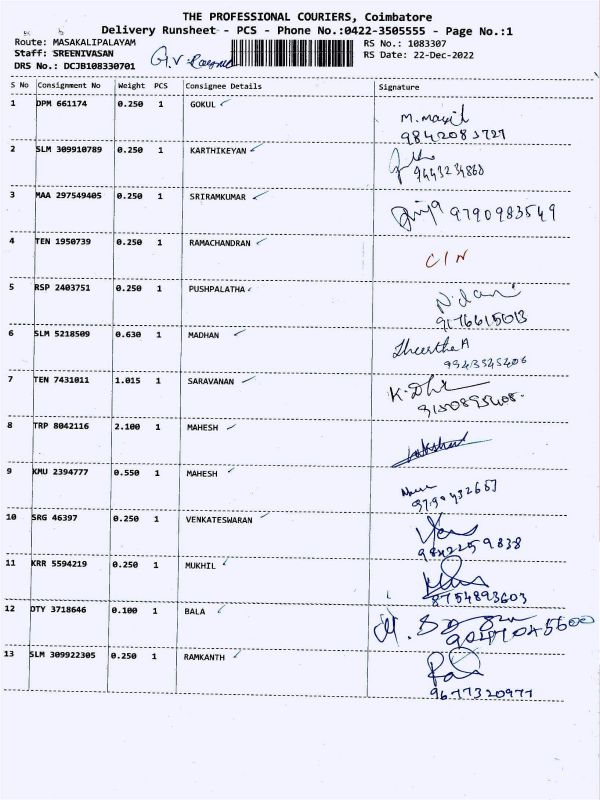 THE PROFESSIONAL COURIERS, Coimbatore
Delivery Runsheet - PCS - Phone No.:0422-3505555 - Page No.:1
Route: MASAKALIPALAYAM
RS No.: 1083307
Staff: SREENIVASAN
RS Date: 22-Dec-2022
DRS No.: DCJB108330701
S No Consignment No Weight PCS Consignee Details Signature
1 DPM 661174 0.250 1 GOKUL
9842083727
2 SLM 309910789 0.250 1 KARTHIKEYAN
9443234868
3 MAA 297549405 0.250 1 SRIRAMKUMAR 9790983549
4 TEN 1950739 0.250 1 RAMACHANDRAN
5 RSP 2403751 0.250 1 PUSHPALATHA
9176615013
6 SLM 5218509 0.630 1 MADHAN
7 TEN 7431011 1.015 1 SARAVANAN
8 TRP 8042116 2.100 1 MAHESH
9 KMU 2394777 0.550 1 MAHESH
9790432657
10 SRG 46397 0.250 1 VENKATESWARAN
9842259838
11 KRR 5594219 0.250 1 MUKHIL
8754893603
12 OTY 3718646 0.100 1 BALA
13 SLM 309922305 0.250 1 RAMKANTH
9677320977